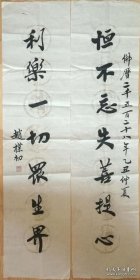 恒不忘失菩提心
佛曆二千五百二十八年乙丑仲夏
利樂一切眾生界
趙樸初